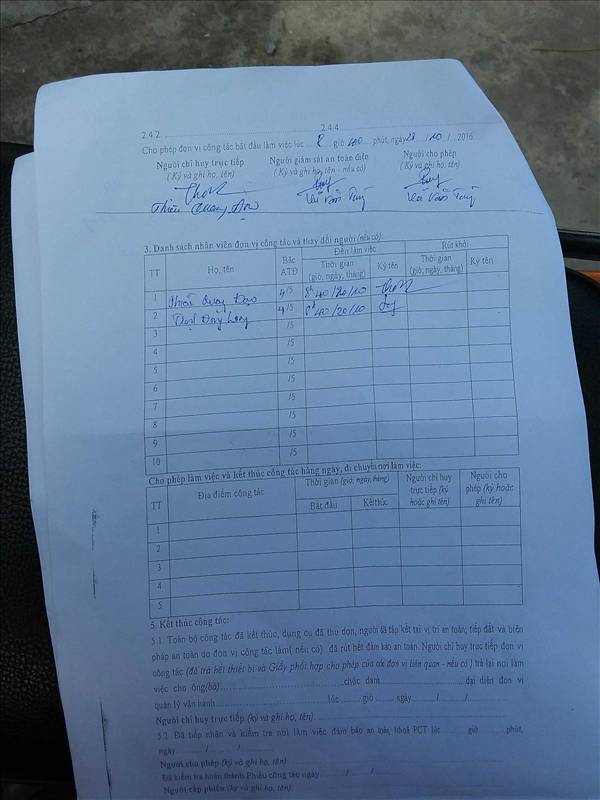 2.4.2. 2.4.4.
Cho phép đơn vị công tác bắt đầu làm việc lúc 8 giờ 40 phút, ngày / 10 / 2016
Người chỉ huy trực tiếp Người giám sát an toàn điện Người cho phép
(Ký và ghi họ, tên) (Ký và ghi họ, tên - nếu có) (Ký và ghi họ, tên)
3. Danh sách nhân viên đơn vị công tác và thay đổi người (nếu có):
TT Họ, tên Bậc ATĐ Đến làm việc Rút khỏi
Thời gian (giờ, ngày, tháng) Ký tên Thời gian (giờ, ngày, tháng) Ký tên
1 4/5 8h40/20/10
2 4/5 8h40/20/10
3 /5
4 /5
5 /5
6 /5
7 /5
8 /5
9 /5
10 /5
Cho phép làm việc và kết thúc công tác hằng ngày, di chuyển nơi làm việc:
TT Địa điểm công tác Thời gian (giờ, ngày, tháng) Người chỉ huy trực tiếp (ký hoặc ghi tên) Người cho phép (ký hoặc ghi tên)
Bắt đầu Kết thúc
1
2
3
4
5
5. Kết thúc công tác:
5.1. Toàn bộ công tác đã kết thúc, dụng cụ đã thu dọn, người đã tập kết tại vị trí an toàn; tiếp đất và biện
pháp an toàn do đơn vị công tác làm( nếu có) đã rút hết đảm bảo an toàn. Người chỉ huy trực tiếp đơn vị
công tác (đã trả hết thiết bị và Giấy phối hợp cho phép của các đơn vị liên quan - nếu có ) trả lại nơi làm
việc cho ông(bà) chức danh đại diện đơn vị
quản lý vận hành lúc giờ ngày / /
Người chỉ huy trực tiếp (ký và ghi họ, tên)
5.2 Đã tiếp nhận và kiểm tra nơi làm việc đảm bảo an toàn, khoá PCT lúc giờ phút,
ngày / /
Người cho phép (ký và ghi họ tên)
Đã kiểm tra hoàn thành Phiếu công tác ngày / /
Người cấp phiếu (ký và ghi họ, tên)